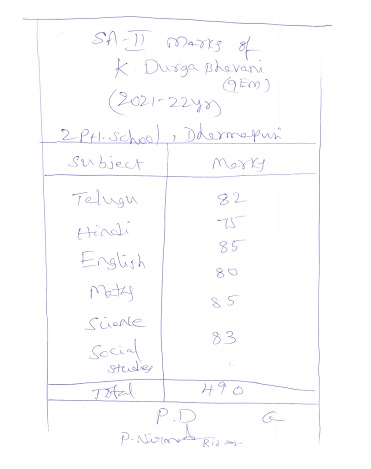 SA-II Marks of
K Durga Bhavani
(9EM)
(2021-22yr)
ZPH.School, Ddermapuri
Subject Marks
Telugu 82
Hindi 75
English 85
Maths 80
Science 85
Social studies 83
Total 490
P.D G
P.Nirmala